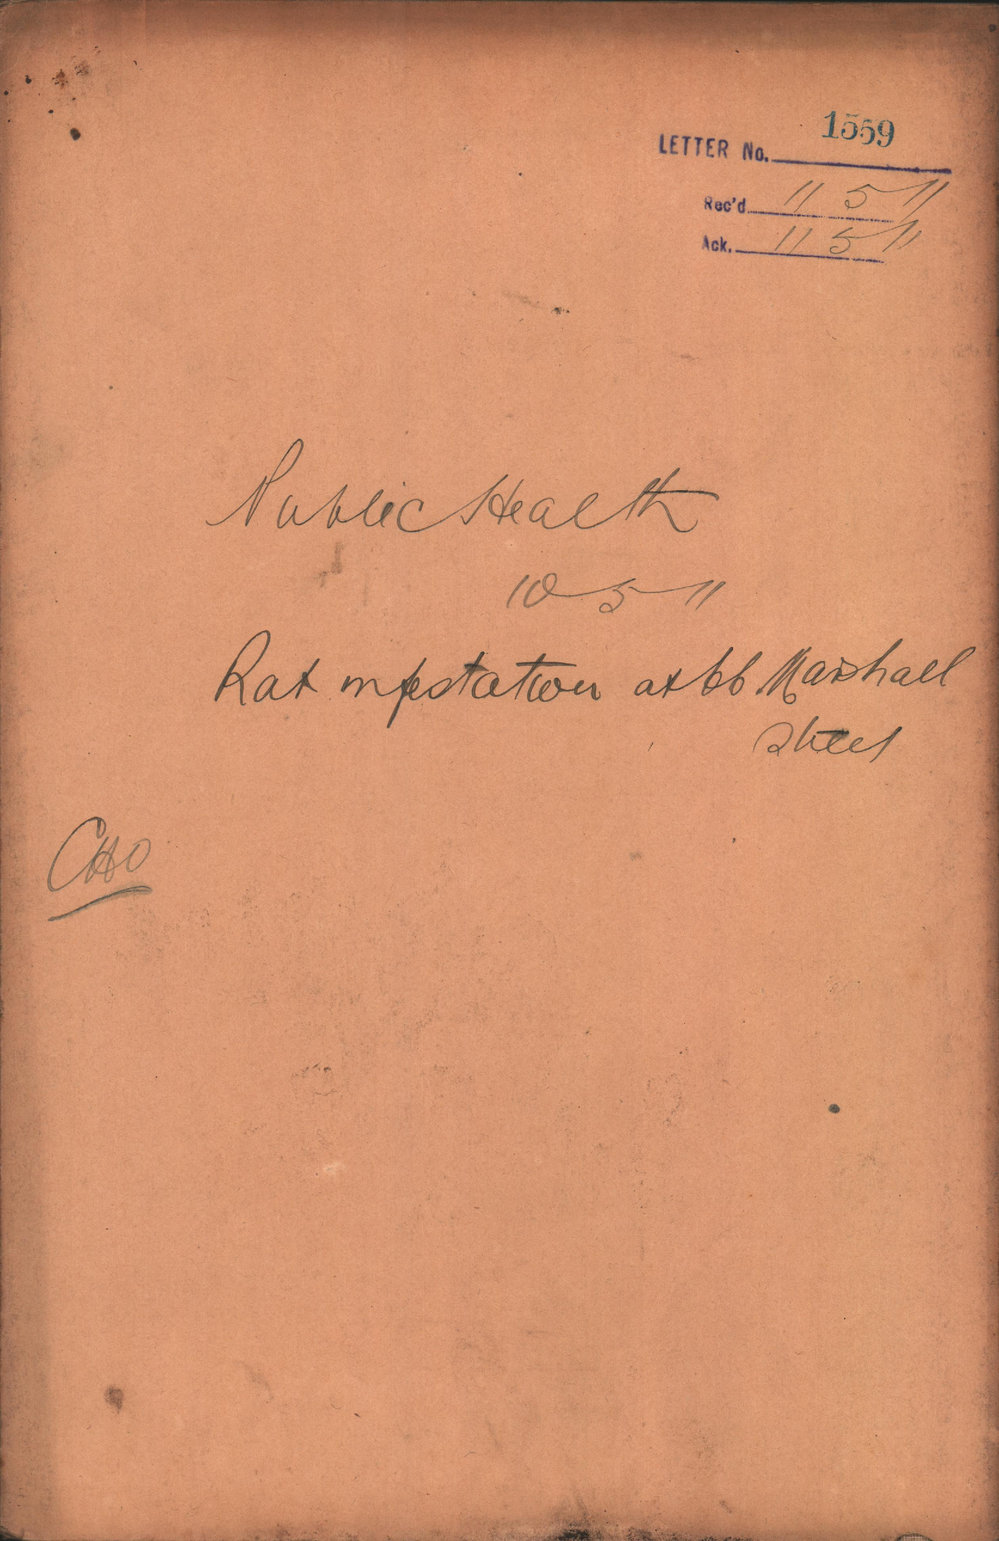 LETTER No. 1559
Rec'd 11 5 11
Ack. 11 5 11
Public Health
10 5 11
Rat infestation at 66 Marshall
Street
CHO